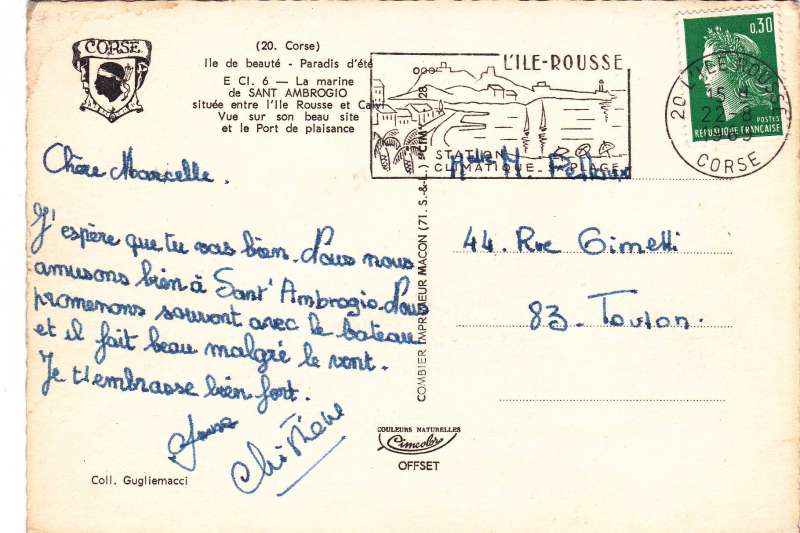 CORSE
(20. Corse)
Ile de beauté - Paradis d'été
E CI. 6 — La marine
de SANT AMBROGIO
située entre l'Ile Rousse et Calvi
Vue sur son beau site
et le Port de plaisance
L'ILE-ROUSSE
STATION
CLIMATIQUE - PLAGE
0,30
POSTES
REPUBLIQUE FRANÇAISE
20 L'ILE ROUSSE
22-8
CORSE
Chère Marcelle.
J'espère que tu vas bien. Nous nous
amusons bien à Sant'Ambrogio. Nous
promenons souvent avec le bateau
et il fait beau malgré le vent.
Je t'embrasse bien fort.
Christiane
COMBIER IMPRIMEUR MACON (71. S.-&-L.) "CIM"
44. Rue Gimelli
83 - Toulon.
COULEURS NATURELLES
Cimcolor
OFFSET
Coll. Gugliemacci